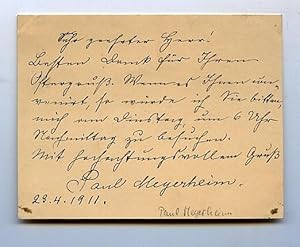 Sehr geehrter Herr!
Besten Dank für Ihren
Ostergruß. Wenn es Ihnen con-
venirt, so würde ich Sie bitten,
mich am Dinstag, um 6 Uhr
Nachmittag zu besuchen.
Mit hochachtungsvollem Gruß
Paul Meyerheim.
28.4.1911.
Paul Meyerheim